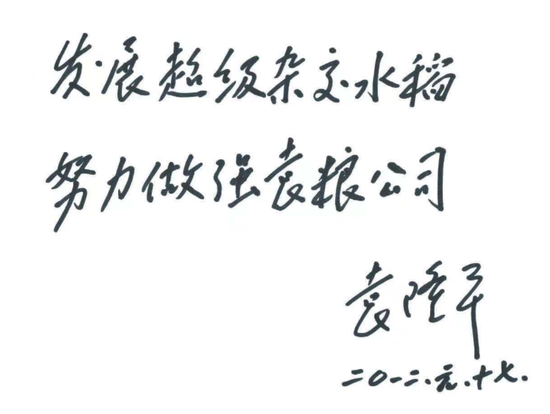 发展超级杂交水稻
努力做强袁粮公司
袁隆平
二〇一二.元.十七.